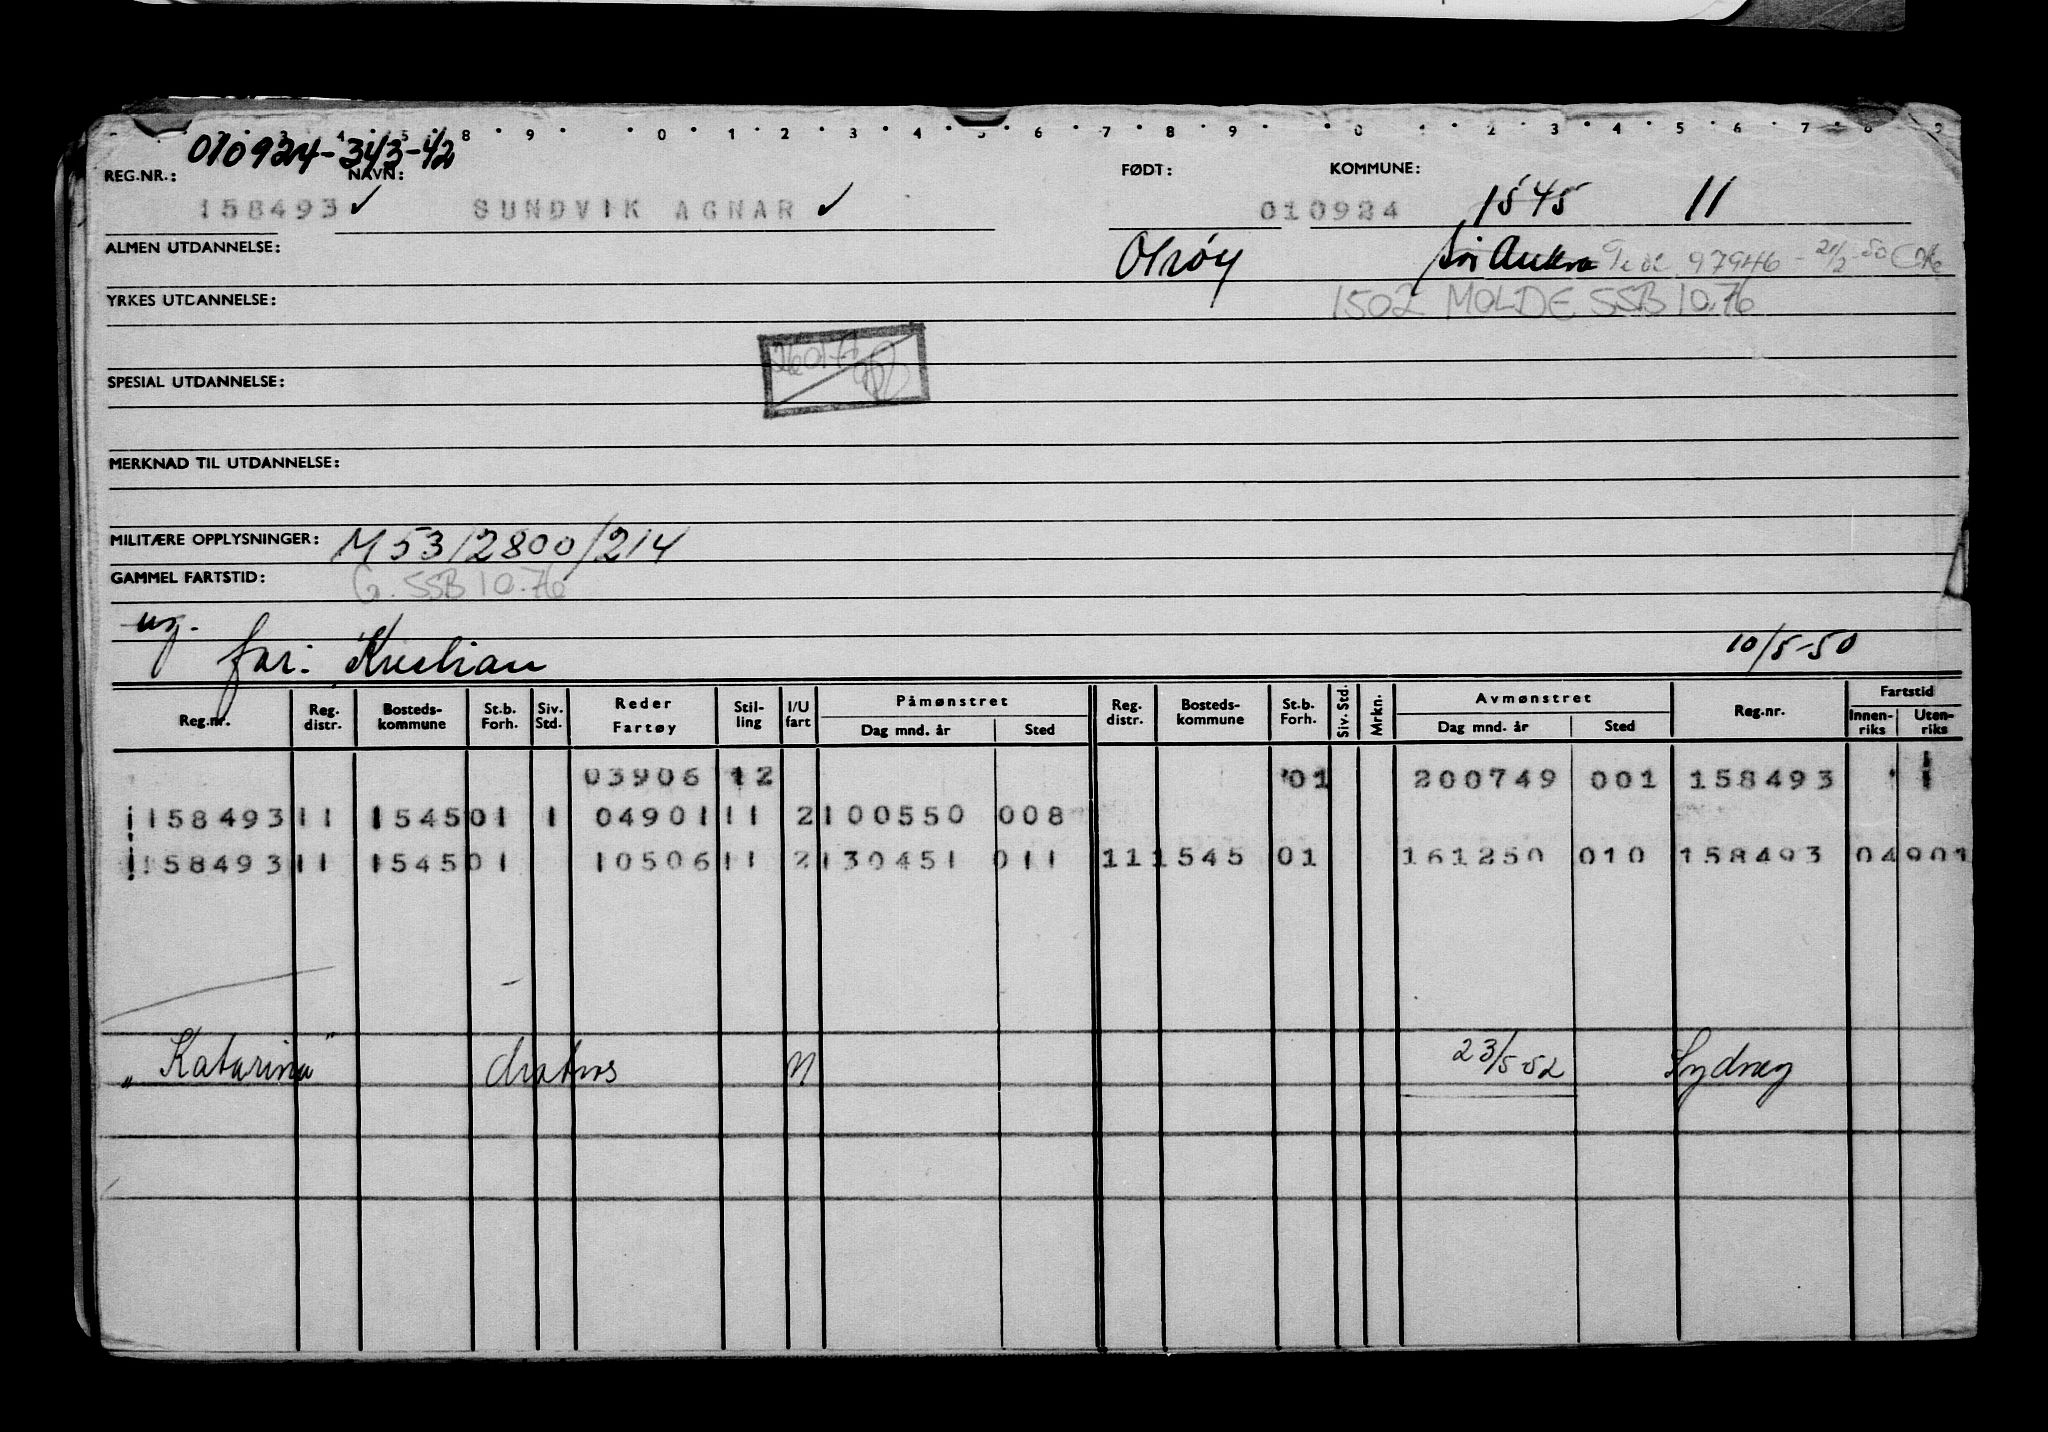 010924-343-42
REG.NR.: NAVN: FØDT: KOMMUNE:
158493 ✓ SUNDVIK AGNAR ✓ 010924 1545 11
ALMEN UTDANNELSE: Otrøy Sør Aukra 97946 - 21/2-50
YRKES UTDANNELSE: 1502 MOLDE SSB 10.76
SPESIAL UTDANNELSE:
MERKNAD TIL UTDANNELSE:
MILITÆRE OPPLYSNINGER: M 53/2800/214
GAMMEL FARTSTID: G. SSB 10.76
ug.
far: Kristian 10/5-50
Reg.nr. Reg. distr. Bosteds-kommune St.b. Forh. Siv. Std. Reder Fartøy Stil-ling I/U fart Påmønstret Dag mnd. år Sted Reg. distr. Bosteds-kommune St.b. Forh. Siv. Std. Mrkn. Avmønstret Dag mnd. år Sted Reg.nr. Fartstid Innen-riks Uten-riks
03906 12 01 200749 001 158493
158493 11 1545 01 1 04901 11 2 100550 008
158493 11 1545 01 10506 11 2 130451 011 11 1545 01 161250 010 158493 04901
"Katarina" N 23/5-52 Sydney